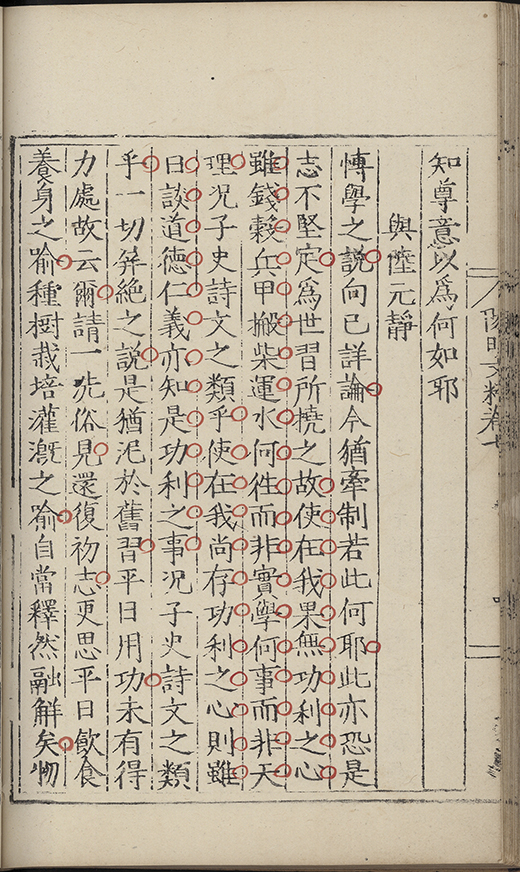 知尊意以爲何如耶
與陸元靜
博學之說向已詳論今猶牽制若此何耶此亦恐是
志不堅定爲世習所撓之故使在我果無功利之心
雖錢穀兵甲搬柴運水何徃而非實學何事而非天
理况子史詩文之類乎使在我尚存功利之心則雖
日談道德仁義亦知是功利之事况子史詩文之類
乎一切屏絶之說是猶泥於舊習平日用功未有得
力處故云爾請一洗俗見還復初志更思平日飮食
養身之喻種樹栽培灌漑之喻自當釋然融解矣物
陽明文粹卷